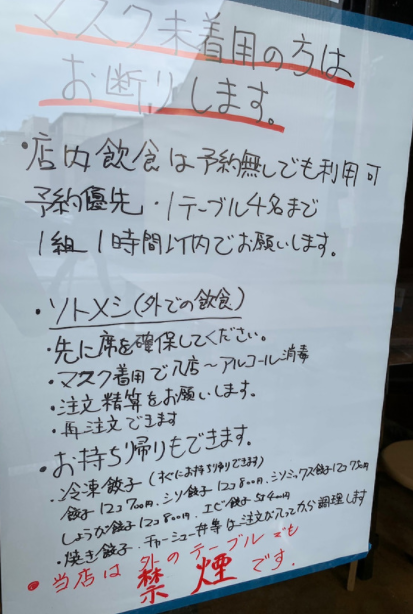 マスク未着用の方は
お断りします。
・店内飲食は予約無しでも利用可
予約優先・1テーブル4名まで
1組 1時間以内でお願いします。
・ソトメシ(外での飲食)
・先に席を確保してください。
・マスク着用で入店～アルコール消毒
・注文精算をお願いします。
・再注文できます
・お持ち帰りもできます。
・冷凍餃子(すぐにお持ち帰りできます)
餃子12コ700円、シソ餃子12コ800円、シソミックス餃子12コ750円
しょうが餃子12コ800円、エビ餃子5コ400円
・焼き餃子、チャーシュー丼等は注文が入ってから調理します
・当店は外のテーブルでも
禁煙です.